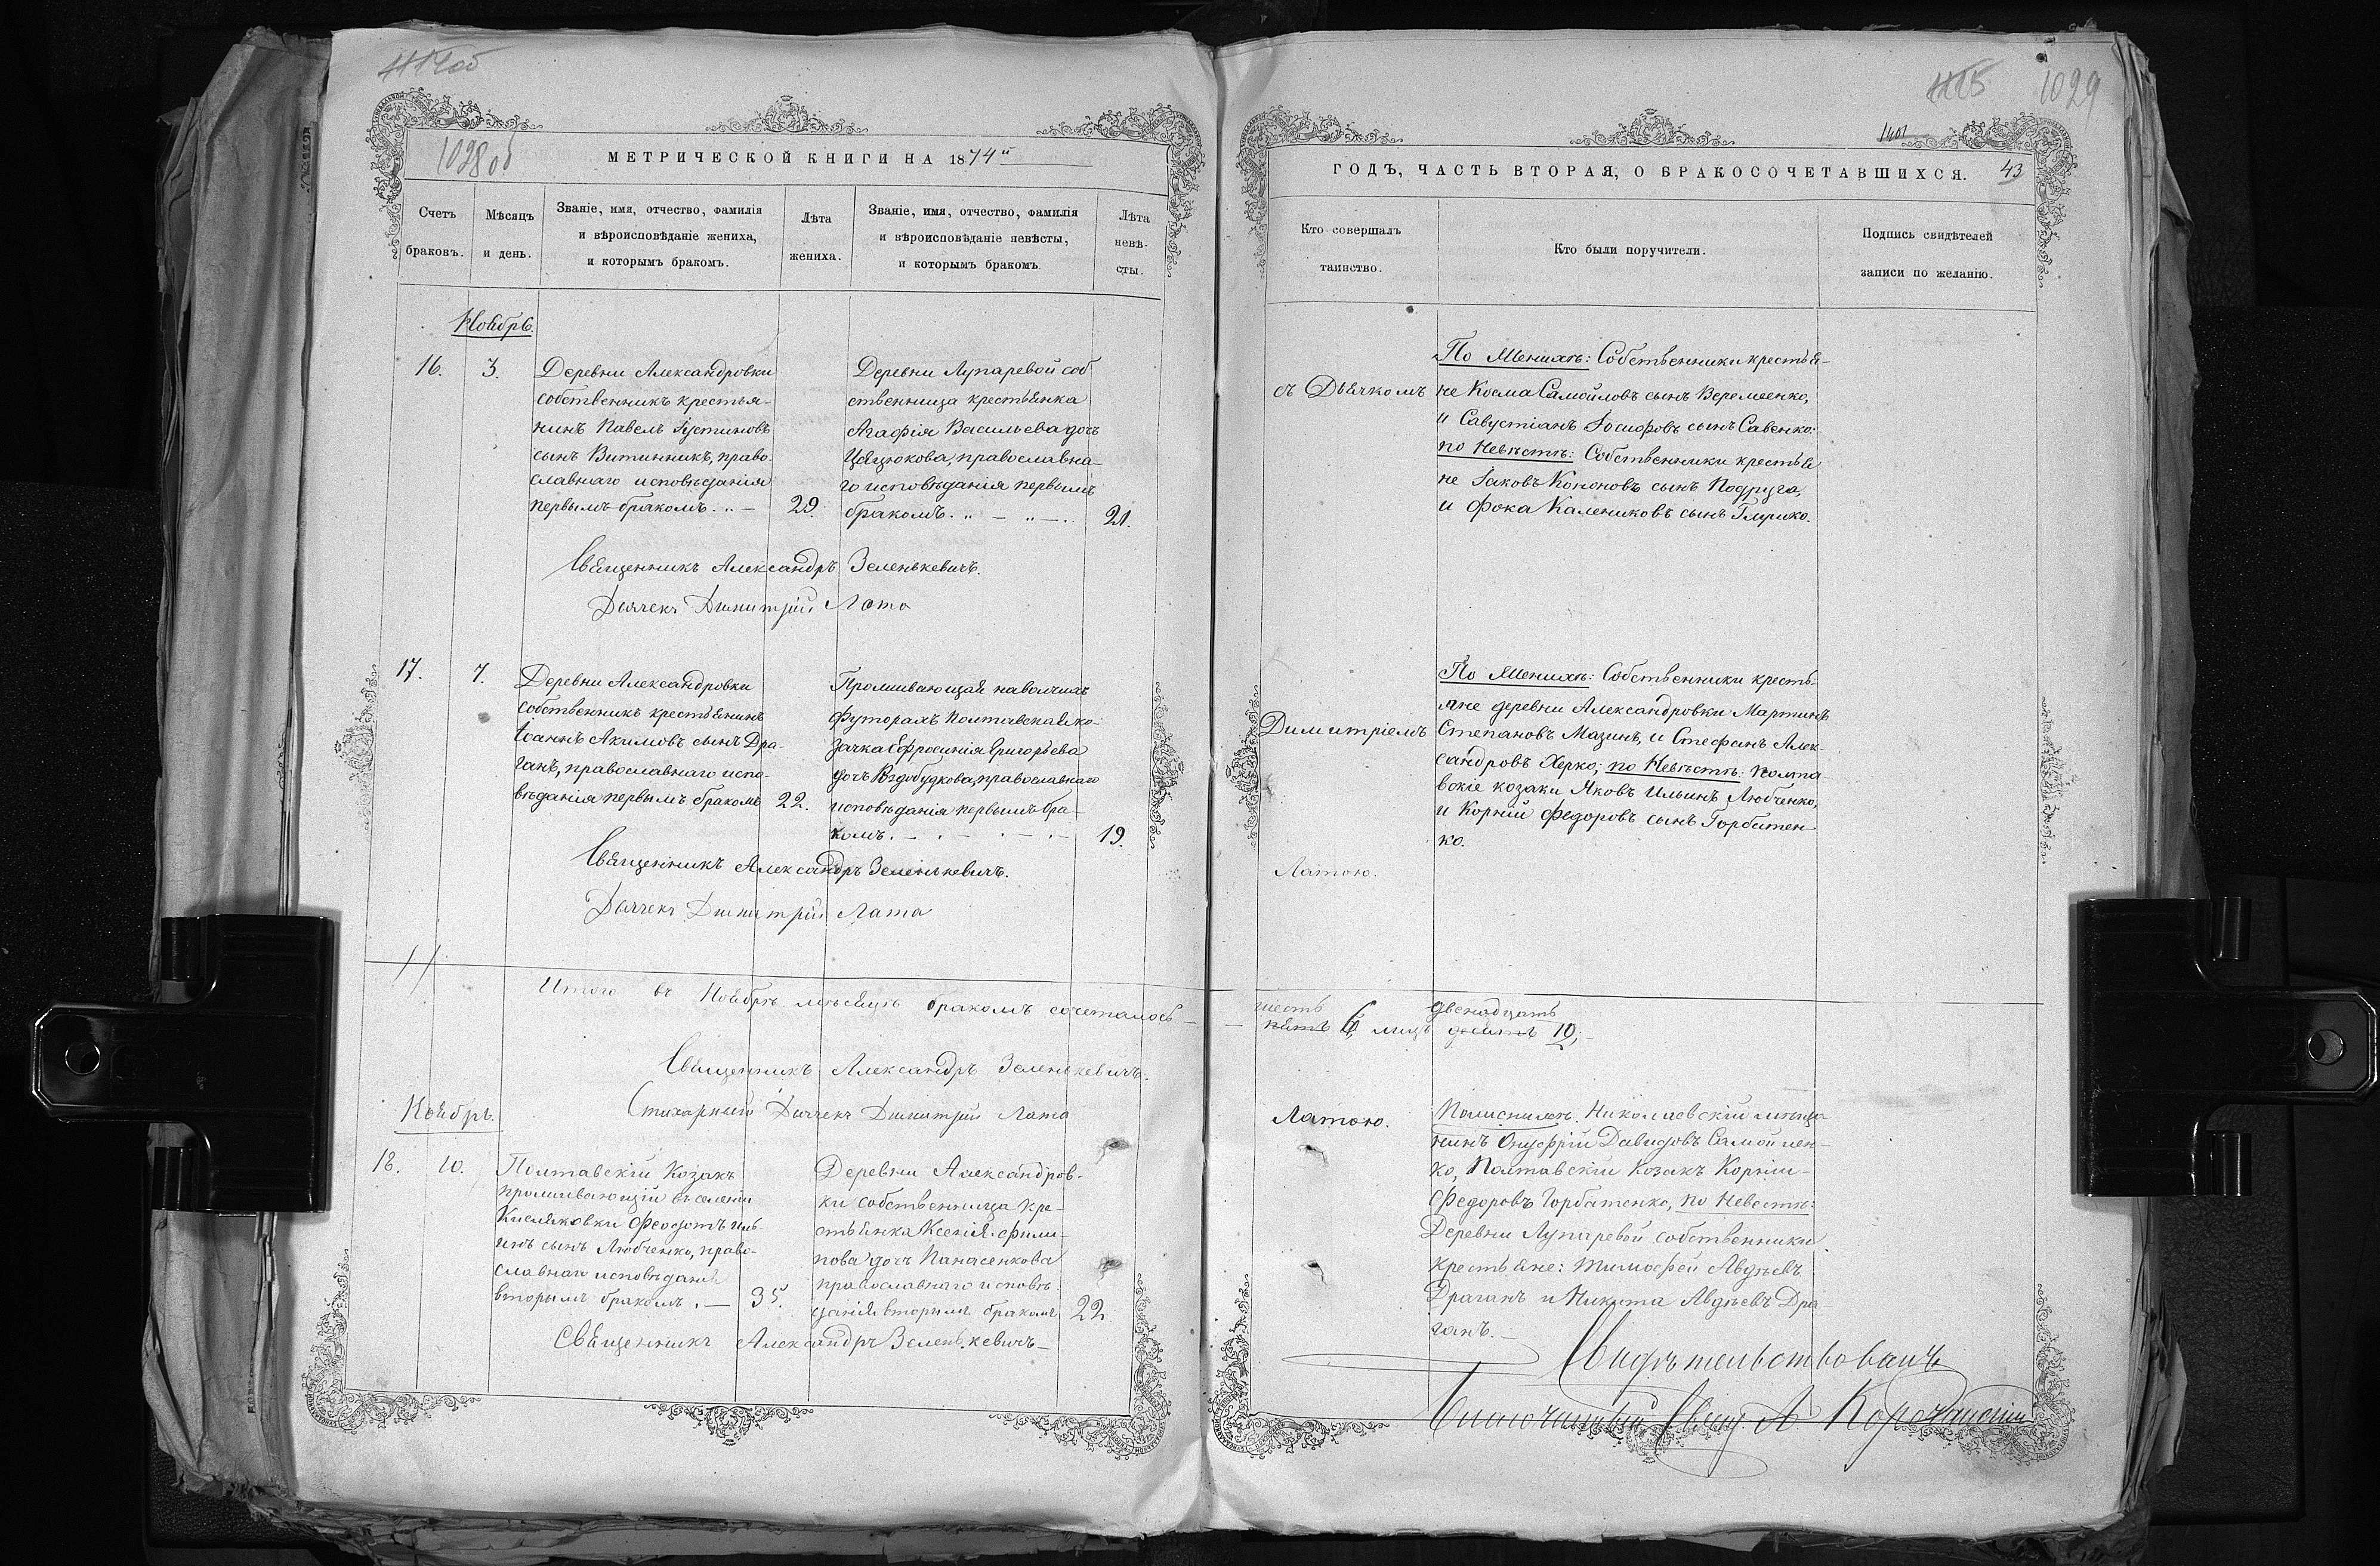 1114об
1028об
МЕТРИЧЕСКОЙ КНИГИ НА 1874й
Счетъ браковъ.
Мѣсяцъ и день.
Званіе, имя, отчество, фамилія
и вѣроисповѣданіе жениха,
и которымъ бракомъ.
Лѣта
жениха.
Званіе, имя, отчество, фамилія
и вѣроисповѣданіе невѣсты,
и которымъ бракомъ.
Лѣта
невѣ-
сты.
Ноябрь.
16.
3.
Деревни Александровки
собственникъ крестья-
нинъ Павелъ Іустиновъ
сынъ Витинникъ, право-
славнаго исповѣданія
первымъ бракомъ. „ —
29.
Деревни Лупаревой соб
ственница крестьянка
Агафія Васильева дочь
Цяцюкова, православна-
го исповѣданія первымъ
бракомъ. „ — „ —.
21.
Священникъ Александръ Зеленькевичъ.
Дьячекъ Димитрій Лата
17.
7.
Деревни Александровки
собственникъ крестьянинъ
Іоаннъ Акимовъ сынъ Дра-
ганъ, православнаго испо-
вѣданія первымъ бракомъ
22.
Проживающая на
футорахъ Полтавская ко-
зачка Ефросинія Григорьева
дочь православнаго
исповѣданія первымъ бра-
комъ. — . — . — . —
19.
Священникъ Александръ Зеленькевичъ.
Дьячекъ Димитрій Лата
Итого въ Ноябрѣ мѣсяцѣ бракомъ сочеталось —
Священникъ Александръ Зеленькевичъ.
Стихарный Дьячекъ Димитрій Лата
Ноябрь.
18.
10.
Полтавскій Козакъ
проживающій въ селеніи
Кисляковки Феодотъ Иль-
инъ сынъ Любченко, право-
славнаго исповѣданія
вторымъ бракомъ. —
35.
Деревни Александров-
ки собственница кре-
стьянка Ксенія Фили-
пова дочь Панасенкова
православнаго исповѣ
данія вторымъ бракомъ
22
Священникъ Александръ Зеленькевичъ —
1115
1029
1401
ГОДЪ, ЧАСТЬ ВТОРАЯ, О БРАКОСОЧЕТАВШИХСЯ.
43
Кто совершалъ
таинство.
Кто были поручители.
Подпись свидѣтелей
записи по желанію.
съ Дьячкомъ
По Женихѣ: Собственники крестья-
не Косма Самойловъ сынъ Веремеенко,
и Савустіанъ Іосифовъ сынъ Савенко:
по Невѣстѣ: Собственники крестья
не Іаковъ Кононовъ сынъ Подруга,
и Фока Калениковъ сынъ
Димитріемъ
По Женихѣ: Собственники кресть-
яне деревни Александровки Мартинъ
Степановъ Мазинъ, и Стефанъ Алек-
сандровъ Херко; по Невѣстѣ: Полта-
вскіе козаки Яковъ Ильинъ Любченко,
и Корній Федоровъ сынъ Горбатен-
ко.
Латою.
шесть двенадцать
— пять 6, лицъ десять 12; —
Латою.
По Николаевскій мѣща
нинъ Онуфрій Давидовъ Самойлен-
ко, Полтавскій Козакъ Корній —
Федоровъ Горбатенко, по Невестѣ:
Деревни Лупаревой собственники
крестьяне: Тимофей Авдѣевъ
Драганъ и Никита Авдѣевъ Дра-
ганъ. —
Свидѣтельствовалъ
Благочинный Свящ. А. Корчанскій